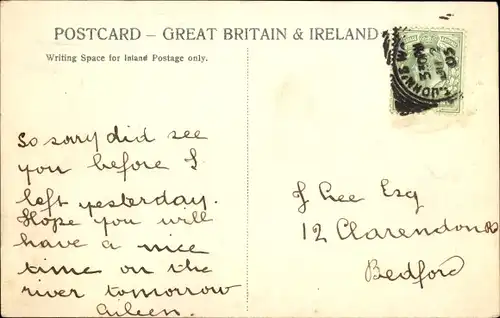 POSTCARD – GREAT BRITAIN & IRELAND
Writing Space for Inland Postage only.
So sorry did see
you before I
left yesterday.
Hope you will
have a nice
time on the
river tomorrow
Aileen.
J Lee Esq
12 Clarendon R
Bedford